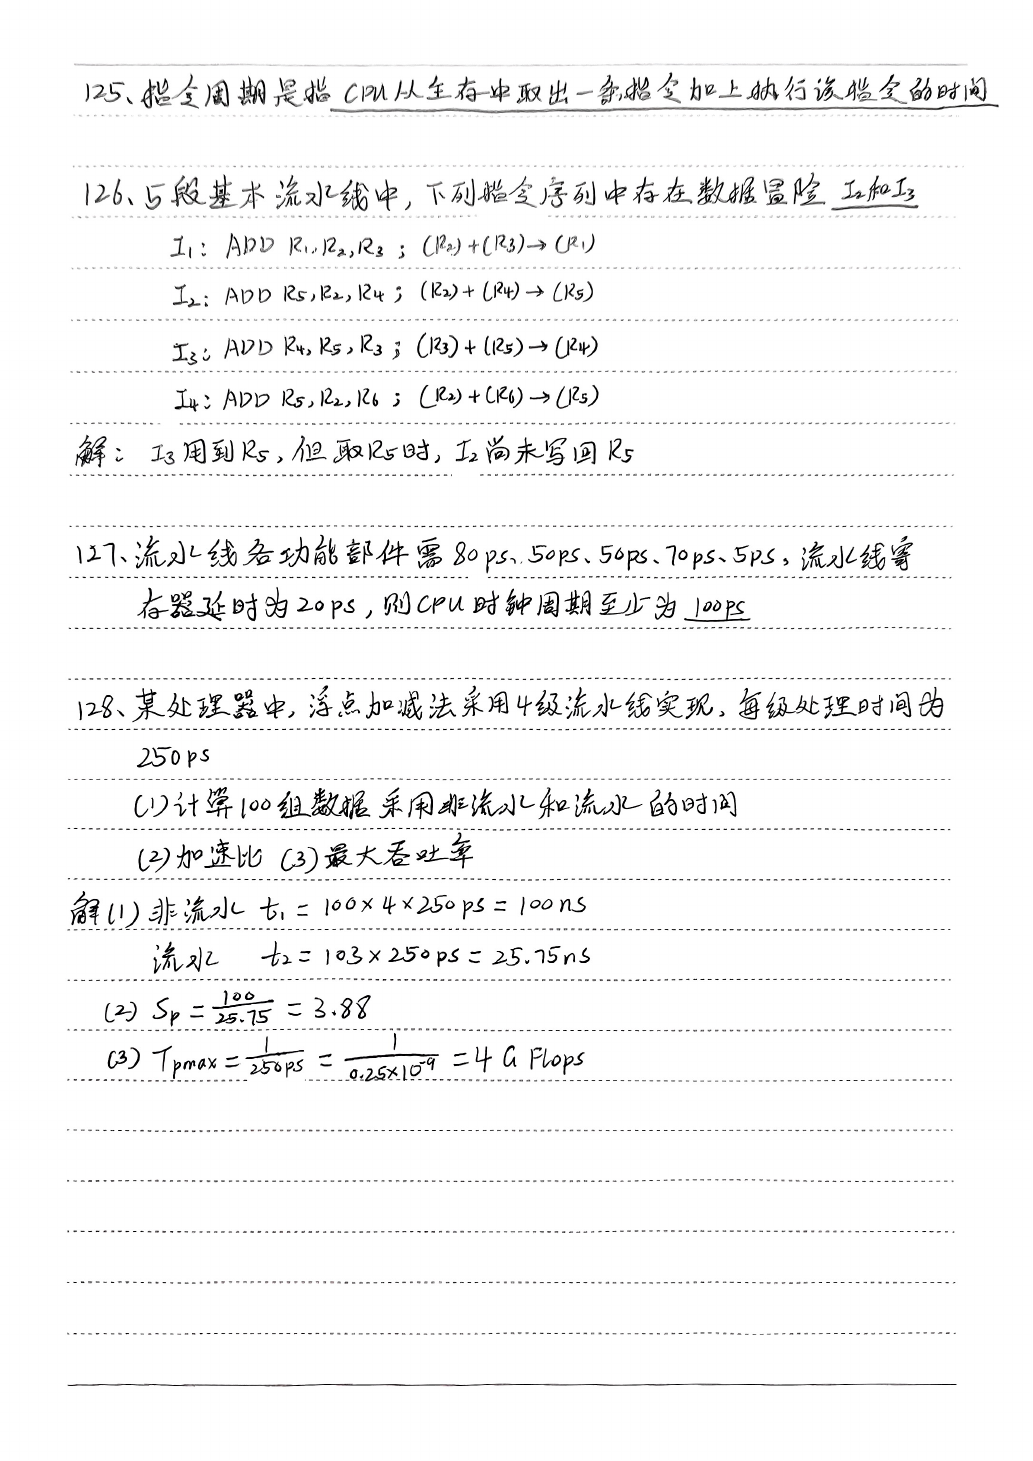 125、指令周期是指 CPU从主存中取出一条指令加上执行该指令的时间
126、5段基本流水线中，下列指令序列中存在数据冒险 I₂和I₃
I₁：ADD R₁,R₂,R₃；(R₂)+(R₃)→(R₁)
I₂：ADD R₅,R₂,R₄；(R₂)+(R₄)→(R₅)
I₃：ADD R₄,R₅,R₃；(R₃)+(R₅)→(R₄)
I₄：ADD R₅,R₂,R₆；(R₂)+(R₆)→(R₅)
解：I₃用到R₅，但取R₅时，I₂尚未写回R₅
127、流水线各功能部件需80ps、50ps、50ps、70ps、5ps，流水线寄
存器延时为20ps，则CPU时钟周期至少为 100ps
128、某处理器中，浮点加减法采用4级流水线实现，每级处理时间为
250ps
(1)计算100组数据采用非流水和流水的时间
(2)加速比 (3)最大吞吐率
解(1) 非流水 t₁=100×4×250ps=100ns
流水 t₂=103×250ps=25.75ns
(2) Sp=100/25.75=3.88
(3) Tpmax=1/250ps=1/0.25×10⁻⁹=4G Flops